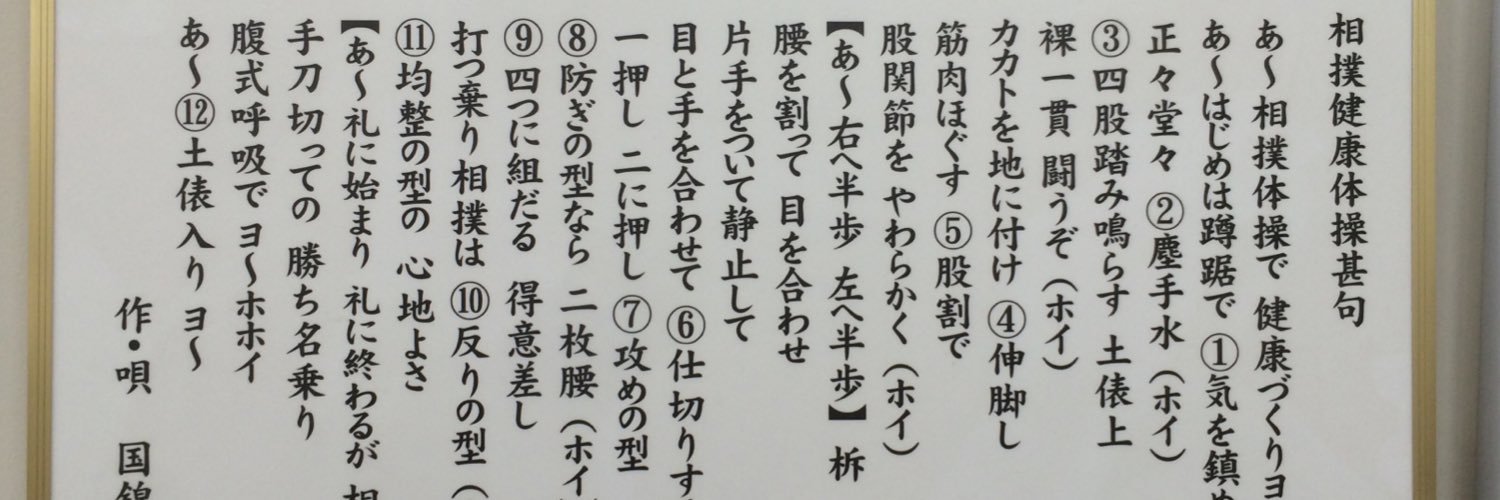 相撲健康体操甚句
あ〜相撲体操で 健康づくりヨ
あ〜はじめは蹲踞で ①気を鎮め
正々堂々 ②塵手水（ホイ）
③四股踏み鳴らす 土俵上
裸一貫 闘うぞ（ホイ）
カカトを地に付け ④伸脚し
筋肉ほぐす ⑤股割で
股関節を やわらかく（ホイ）
【あ〜右へ半歩 左へ半歩】 柝
腰を割って 目を合わせ
片手をついて静止して
目と手を合わせて ⑥仕切りす
一押し 二に押し ⑦攻めの型
⑧防ぎの型なら 二枚腰（ホイ
⑨四つに組だる 得意差し
打つ棄り相撲は ⑩反りの型（
⑪均整の型の 心地よさ
【あ〜礼に始まり 礼に終わるが 相
手刀切っての 勝ち名乗り
腹式呼吸で ヨ〜ホホイ
あ〜⑫土俵入り ヨ〜
作・唄 国錦